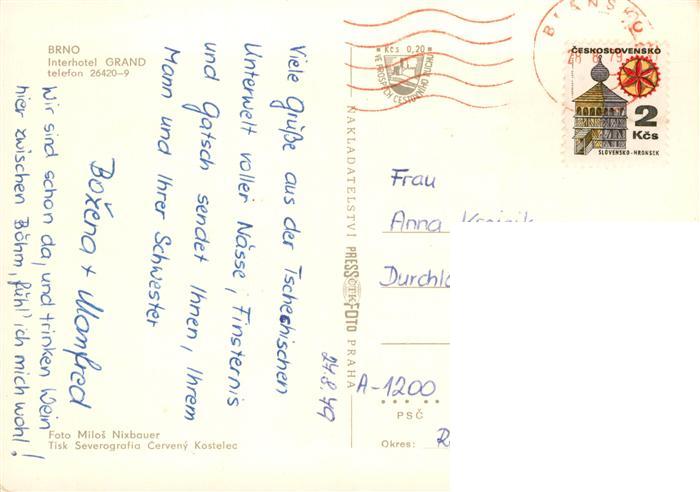 BRNO
Interhotel GRAND
telefon 26420-9
Viele Grüße aus der Tschechischen
Unterwelt voller Nässe, Finsternis
und Gatsch sendet Ihnen, Ihrem
Mann und Ihrer Schwester
Božena + Manfred
Wir sind schon da, und trinken Wein
hier zwischen Böhm, fühl' ich mich wohl!
24.8.79
Foto Miloš Nixbauer
Tisk Severografia Červený Kostelec
NAKLADATELSTVÍ PRESSFOTO PRAHA
ČTK
Kčs 0,20
VE PROSPĚCH CESTOVNÍHO RUCHU
BLANSKO
28 8 79
ČESKOSLOVENSKO
2
Kčs
SLOVENSKO-HRONSEK
Frau
Anna
A-1200
PSČ
Okres: